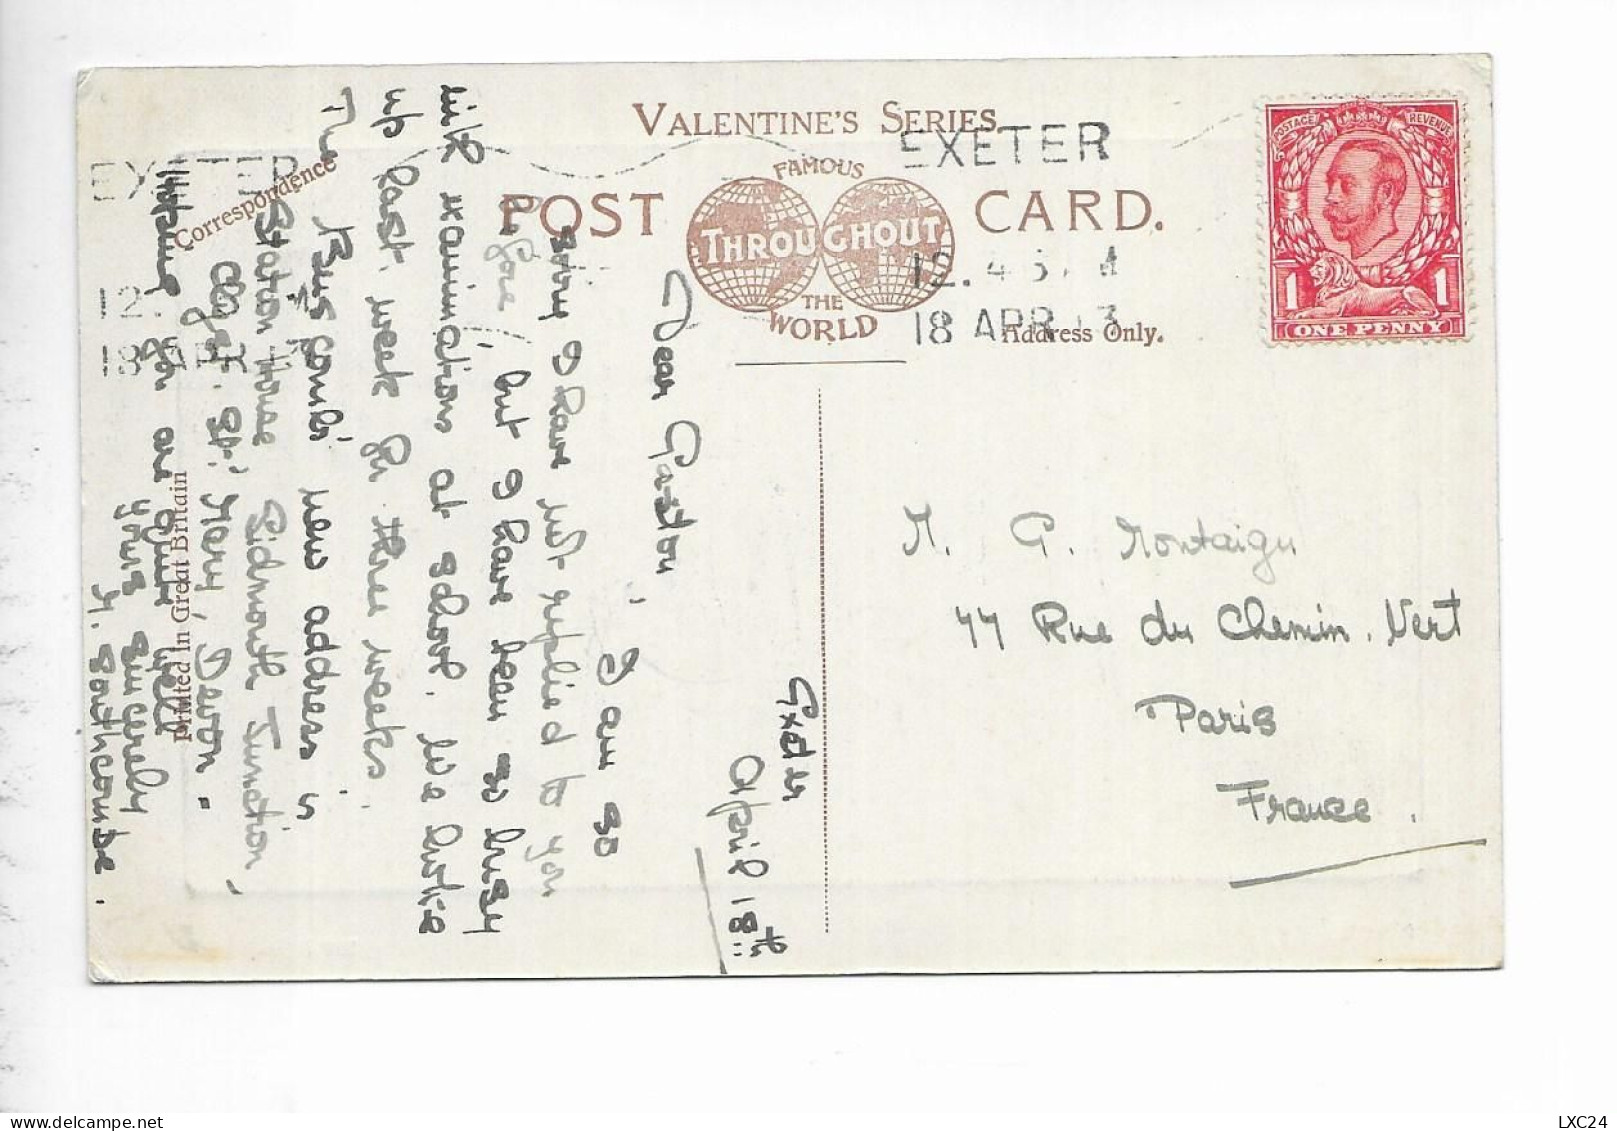 VALENTINE'S SERIES
FAMOUS
POST CARD.
THROUGHOUT
THE
WORLD
Correspondence
Address Only.
Printed in Great Britain
EXETER
12. 45
18 APR 13
EXETER
12.
18 APR
POSTAGE REVENUE
1 1
ONE PENNY
Exeter
April 18th
Dear Gaston,
I am so
sorry I have not replied to you
before, but I have been so busy
with examinations at school. We broke
up last week for three weeks.
The Bascomb's new address is
Station House Sidmouth Junction,
St. Mary, Devon.
you are quite well
yours sincerely
Southcombe.
M. G. Montaigu
77 Rue du Chemin. Vert
Paris
France.
LXC24